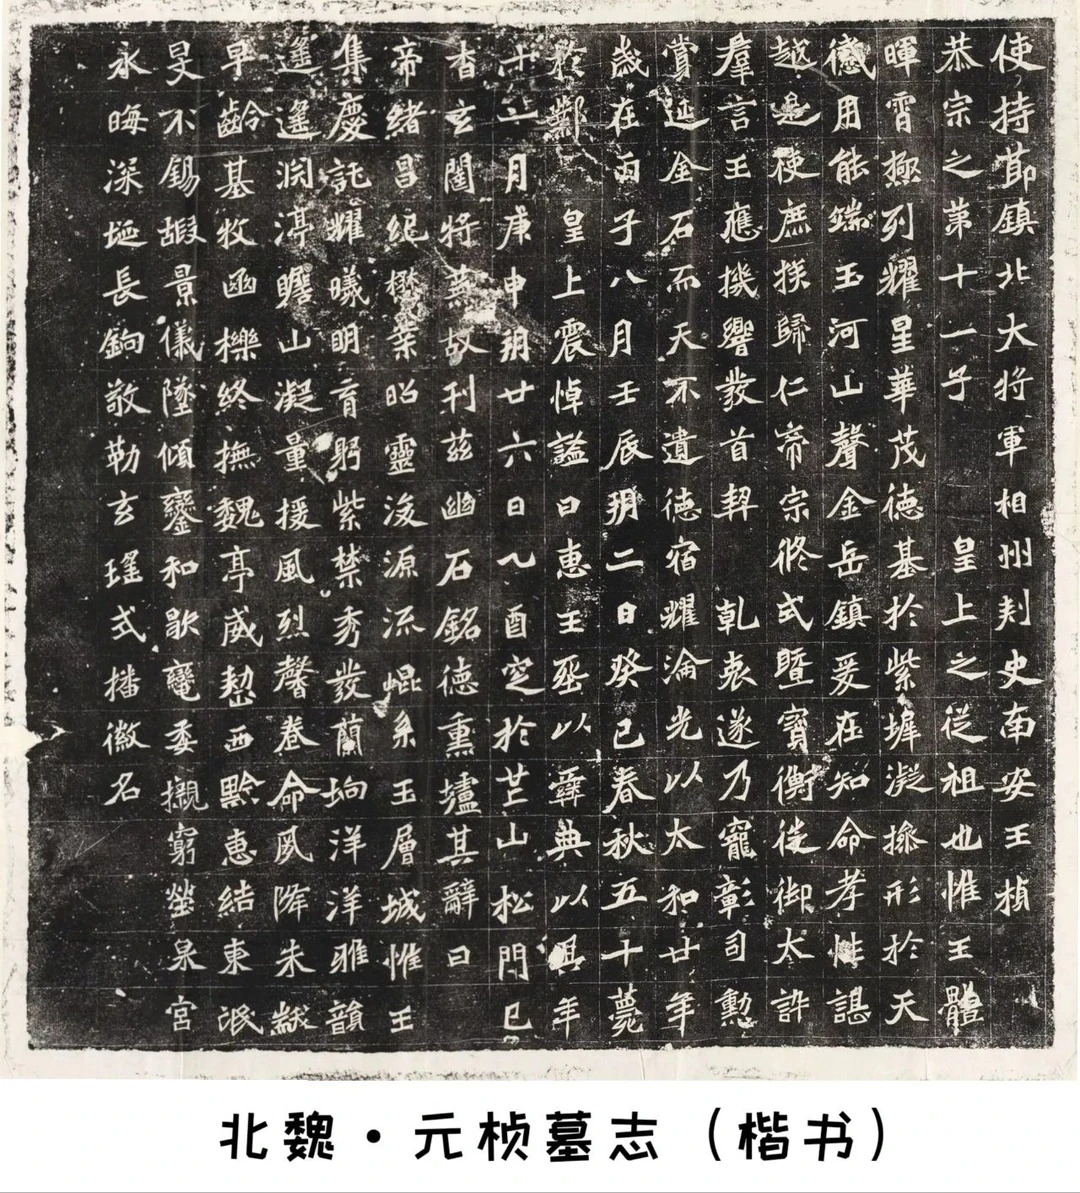 使持節鎮北大將軍相州刾史南安王楨
恭宗之第十一子 皇上之從祖也惟王體
暉霄極列耀星華茂德基於紫墀凝操形於天
感用能端玉河山聲金岳鎮爰在知命孝性諶
越是使庶族歸仁帝宗攸式暨寶衡徙御太訏
羣言王應機響發首契 乾衷遂乃寵彰司勳
賞延金石而天不遺德宿耀淪光以太和廿年
歲在丙子八月壬辰朔二日癸巳春秋五十薨
於鄴 皇上震悼諡曰惠王塟以彝典以其年
十一月庚申朔廿六日乙酉窆於芒山松門已
杳玄闥將蕪故刊茲幽石銘德熏壚其辭曰
帝緒昌紀懋業昭靈浚源流崐系玉層城惟王
集慶託耀曦明育躬紫禁秀發蘭坰洋洋雅韻
遙遙淵渟瞻山凝量援風烈馨卷命夙降朱黻
早齡基牧函櫟終撫魏亭威契西黔惠結東氓
旻不錫嘏景儀墜傾鑾和歇鞶委櫬窮塋泉宮
永晦深埏長鉤敬勒玄瑤式播徽名
北魏·元桢墓志（楷书）